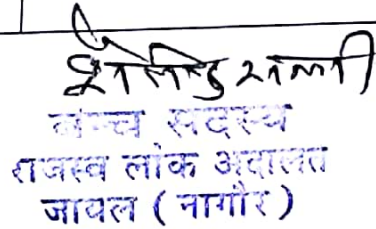 बेन्च सदस्य
राजस्व लोक अदालत
जायल ( नागौर )